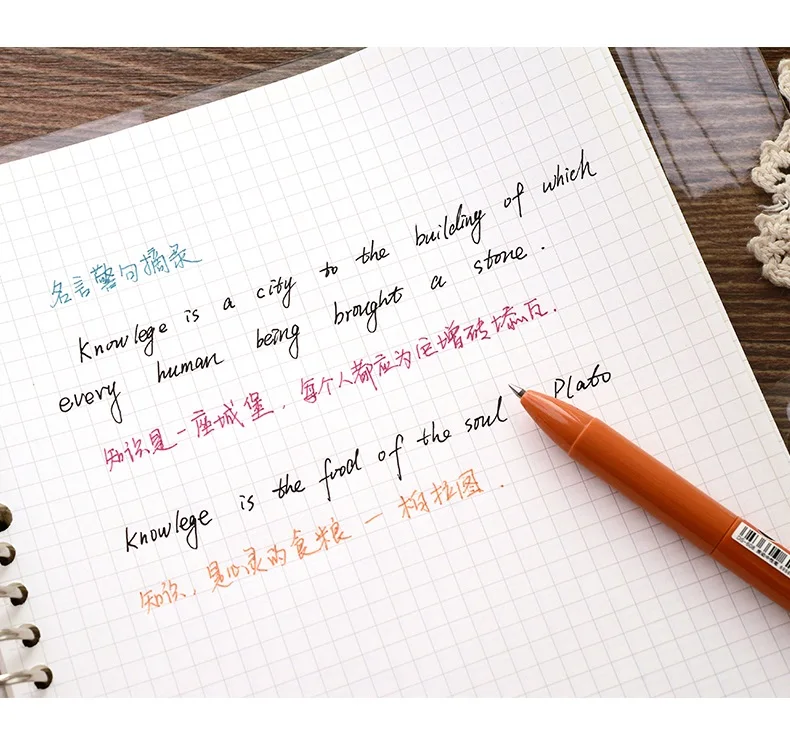 名言警句摘录
Knowlege is a city to the building of which
every human being brought a stone.
知识是一座城堡，每个人都应为它增砖添瓦.
Knowlege is the food of the soul Plato
知识，是心灵的食粮一柏拉图.